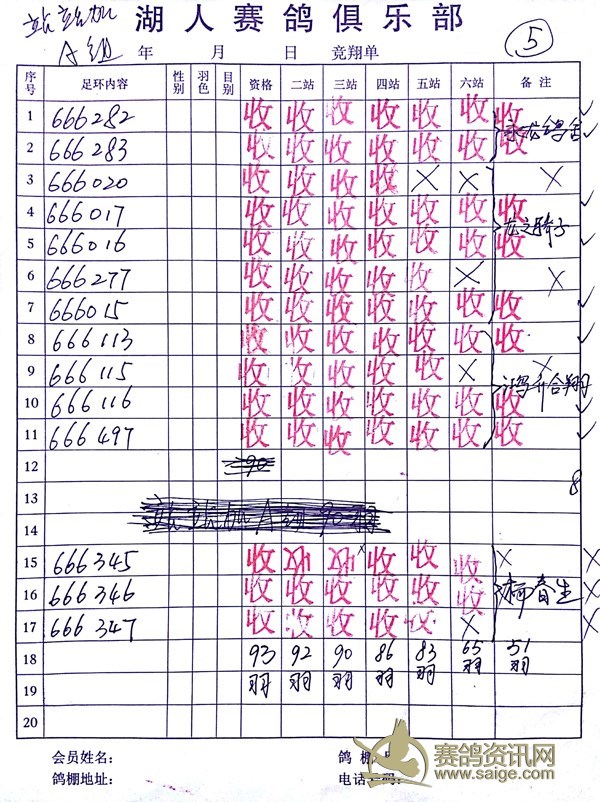 站站加 湖人赛鸽俱乐部
A组 年 月 日 竞翔单 5
序号 足环内容 性别 羽色 目别 资格 二站 三站 四站 五站 六站 备注
1 666282 收 收 收 收 收 收 收 ✓
2 666283 收 收 收 收 收 收 收 ✓
3 666020 收 收 收 收 × × ×
4 666017 收 收 收 收 收 收 收 ✓
龙之骑子
5 666016 收 收 收 收 收 收 收 ✓
6 666277 收 收 收 收 收 × ×
7 666015 收 收 收 收 收 收 收 ✓
8 666113 收 收 收 收 收 收 收 ✓
9 666115 收 收 收 收 收 × ×
10 666116 收 收 收 收 收 收 收 ✓
11 666497 收 收 收 收 收 收 收 ✓
12
13 8
14
15 666345 收 收 收 收 收 收 × ×
16 666346 收 收 收 收 收 收 ×
柳春生
17 666347 收 收 收 收 收 × ×
18 93羽 92羽 90羽 86羽 83羽 65羽 51羽
19
20
会员姓名: 鸽棚
鸽棚地址: 电话
赛鸽资讯网
www.saige.com